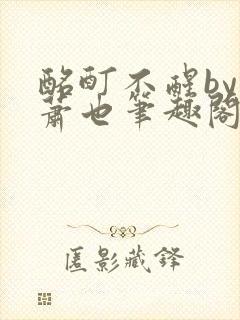 酩酊不醒by
萧也笔趣阁
匿影藏锋